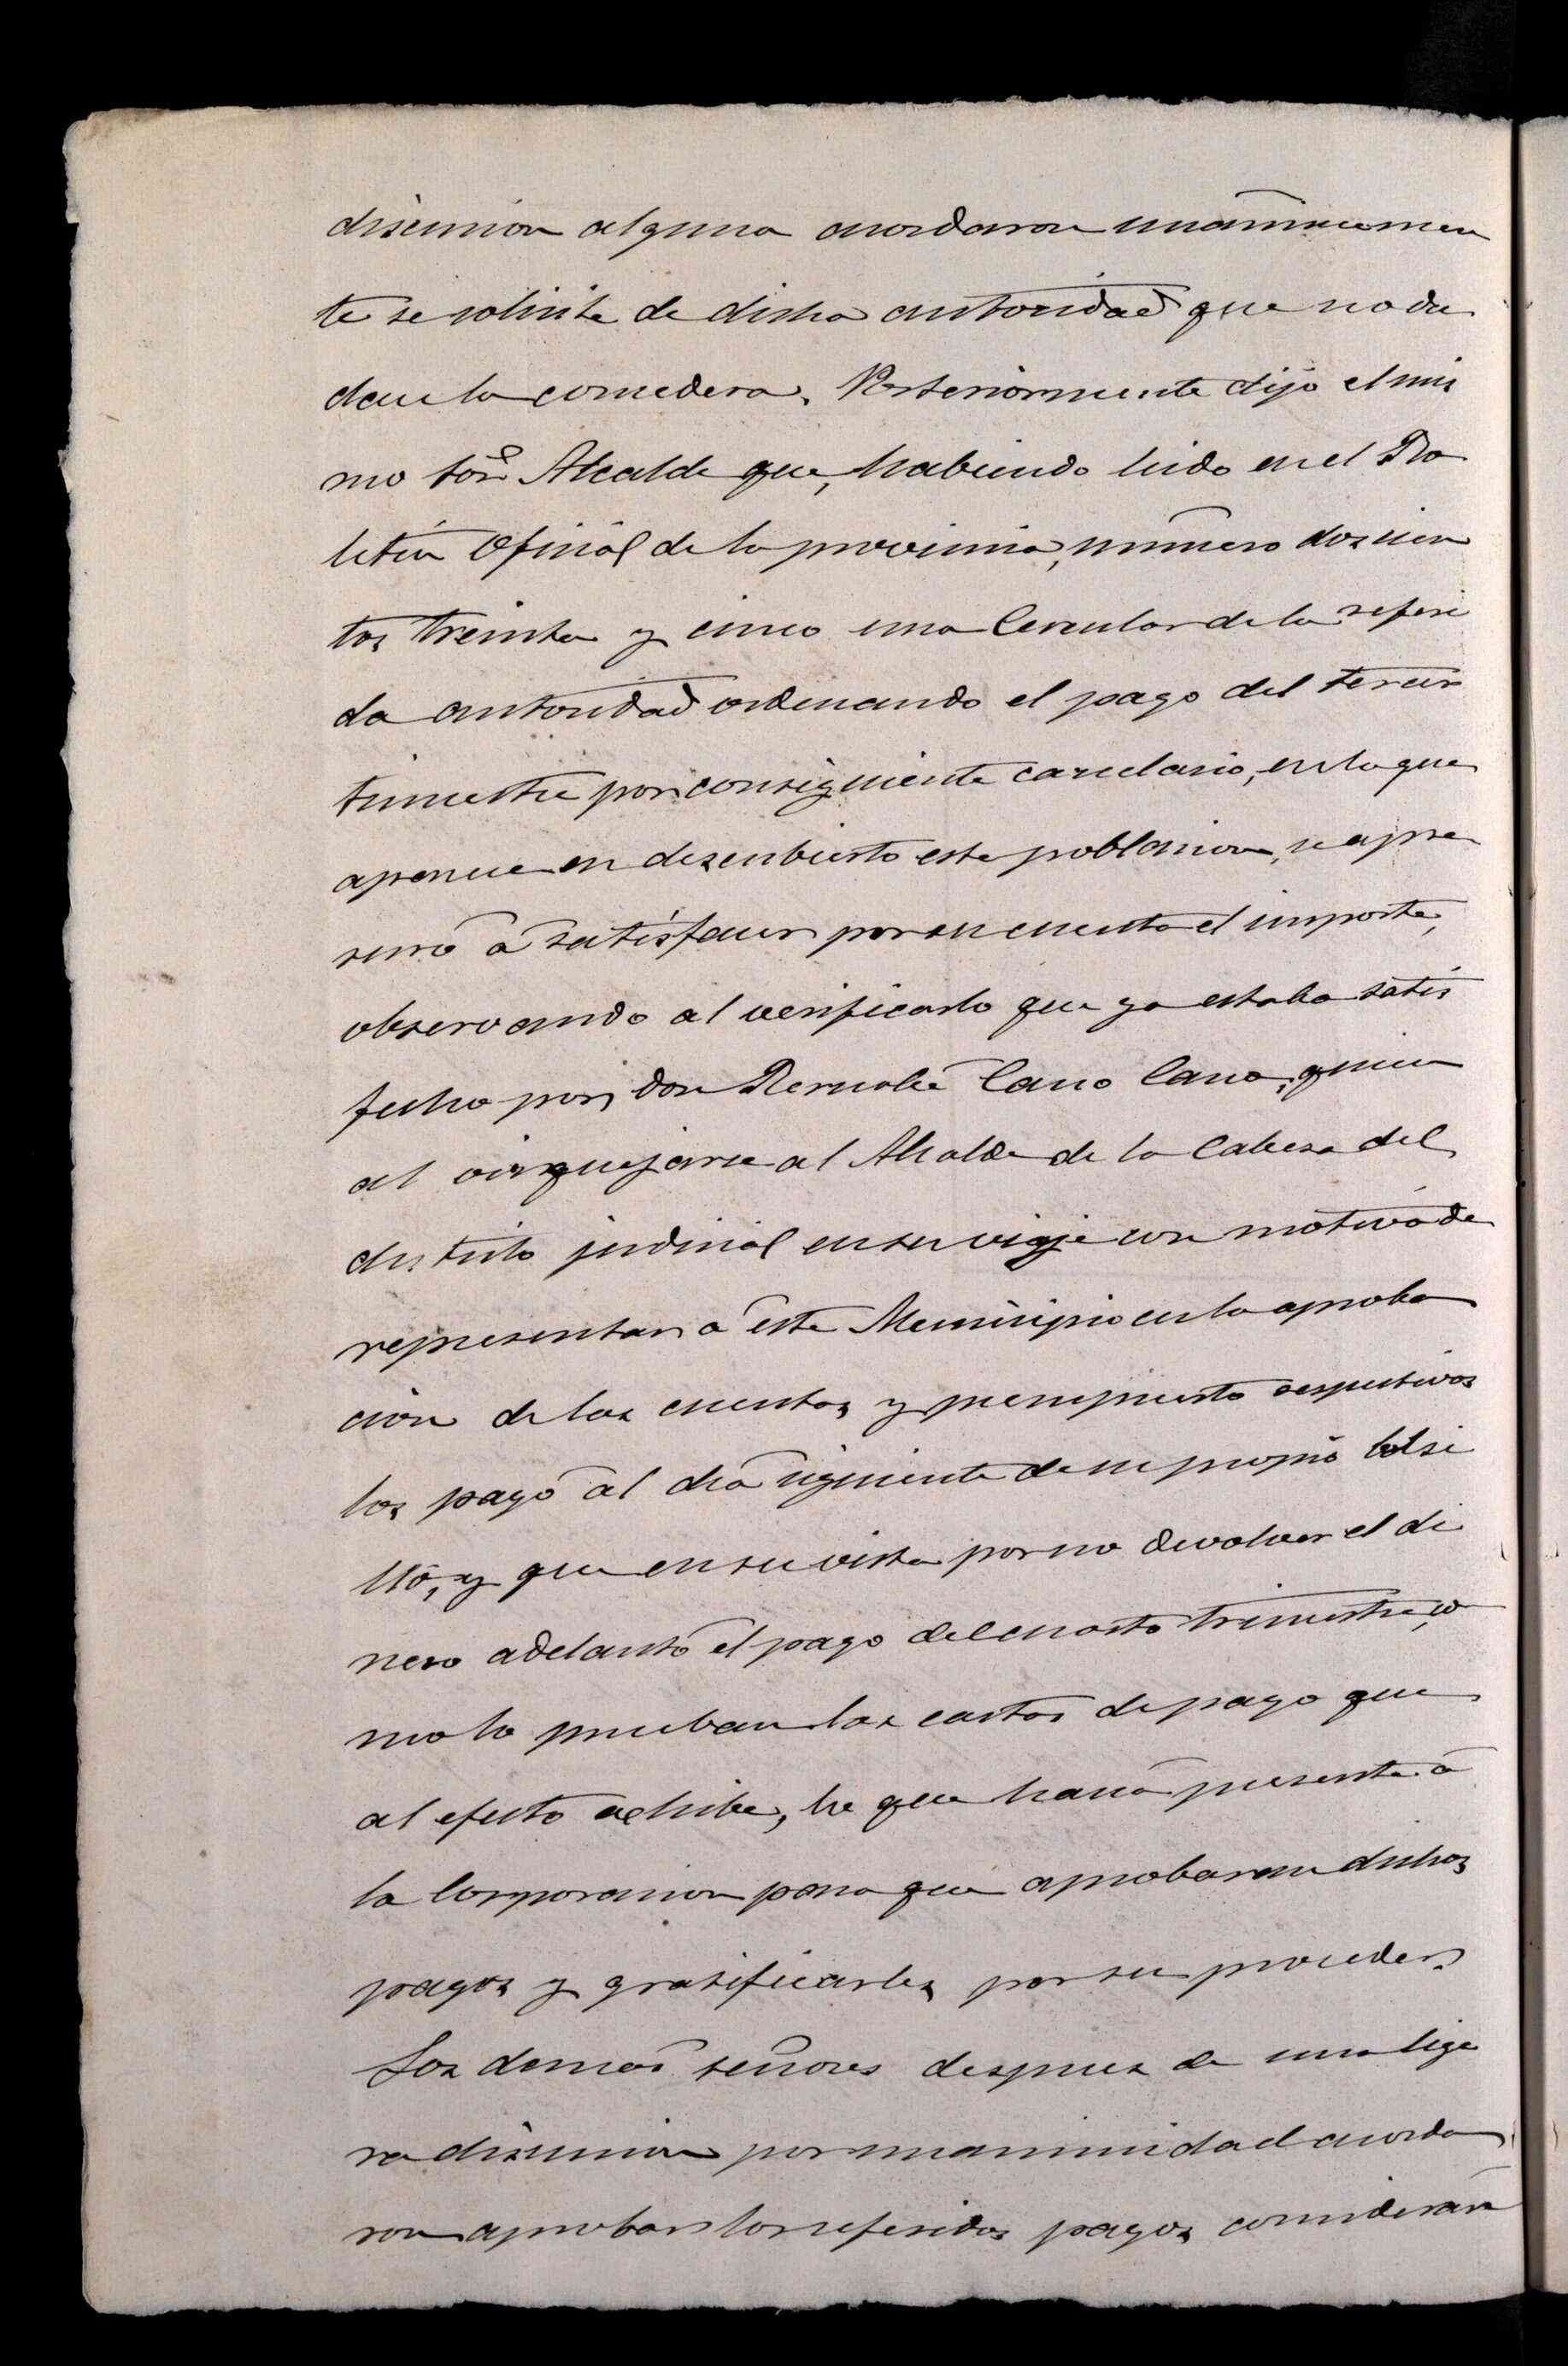 discusion alguna acordaron unánimemen
te se solicite de dicha autoridad que no du
dan la concedera. Posteriormente dijo el mis
mo Sõr Alcalde que, habiendo leido en el Bo
letín Oficial de la provincia, número doscien
tos treinta y cinco una Circular de la referi
da autoridad ordenando el pago del tercer
trimestre por consiguiente carcelario, en la que
aparece en descubierto esta poblacion, se apre
suró á satisfacer por su cuenta el importe,
observando al verificarlo que ya estaba satis
fecho por don Bernabé Cano Cano, quien
al oir quejarse al Alcalde de la Cabeza del
distrito judicial en su viaje con motivo de
representar á este Municipio en la aproba
ción de las cuentas y presupuesto respectivos
los pagó al día siguiente de su propio bolsi
lló, y que en su vista por no devolver el di
nero adelantó el pago del cuarto trimestre, co
mo lo prueban las cartas de pago que
al efecto exhibe, lo que hacía presente á
la Corporacion para que aprobaran dichos
pagos y gratificarles por su proceder.
Los demás señores despues de una lige
ra discusion por unanimidad acorda
ron aprobar los referidos pagos considerán